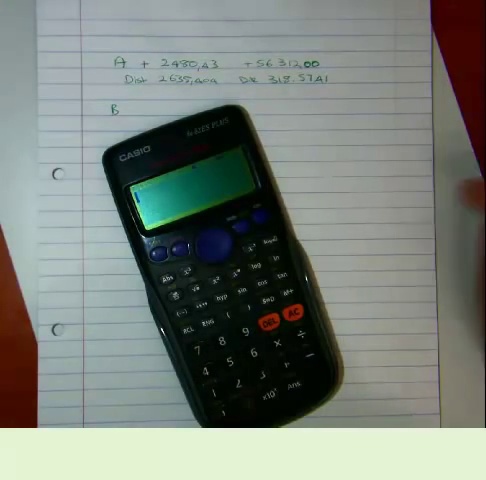 A + 2480,43 +56 312,00
Dist 2635,409 Dir 318.5741
B
CASIO
fx-82ES PLUS
Abs x³
x² log ln
(-) hyp sin cos tan
RCL ENG ( ) S⇔D M+
7 8 9 DEL AC
4 5 6 × ÷
1 2 3 + −
×10ˣ Ans